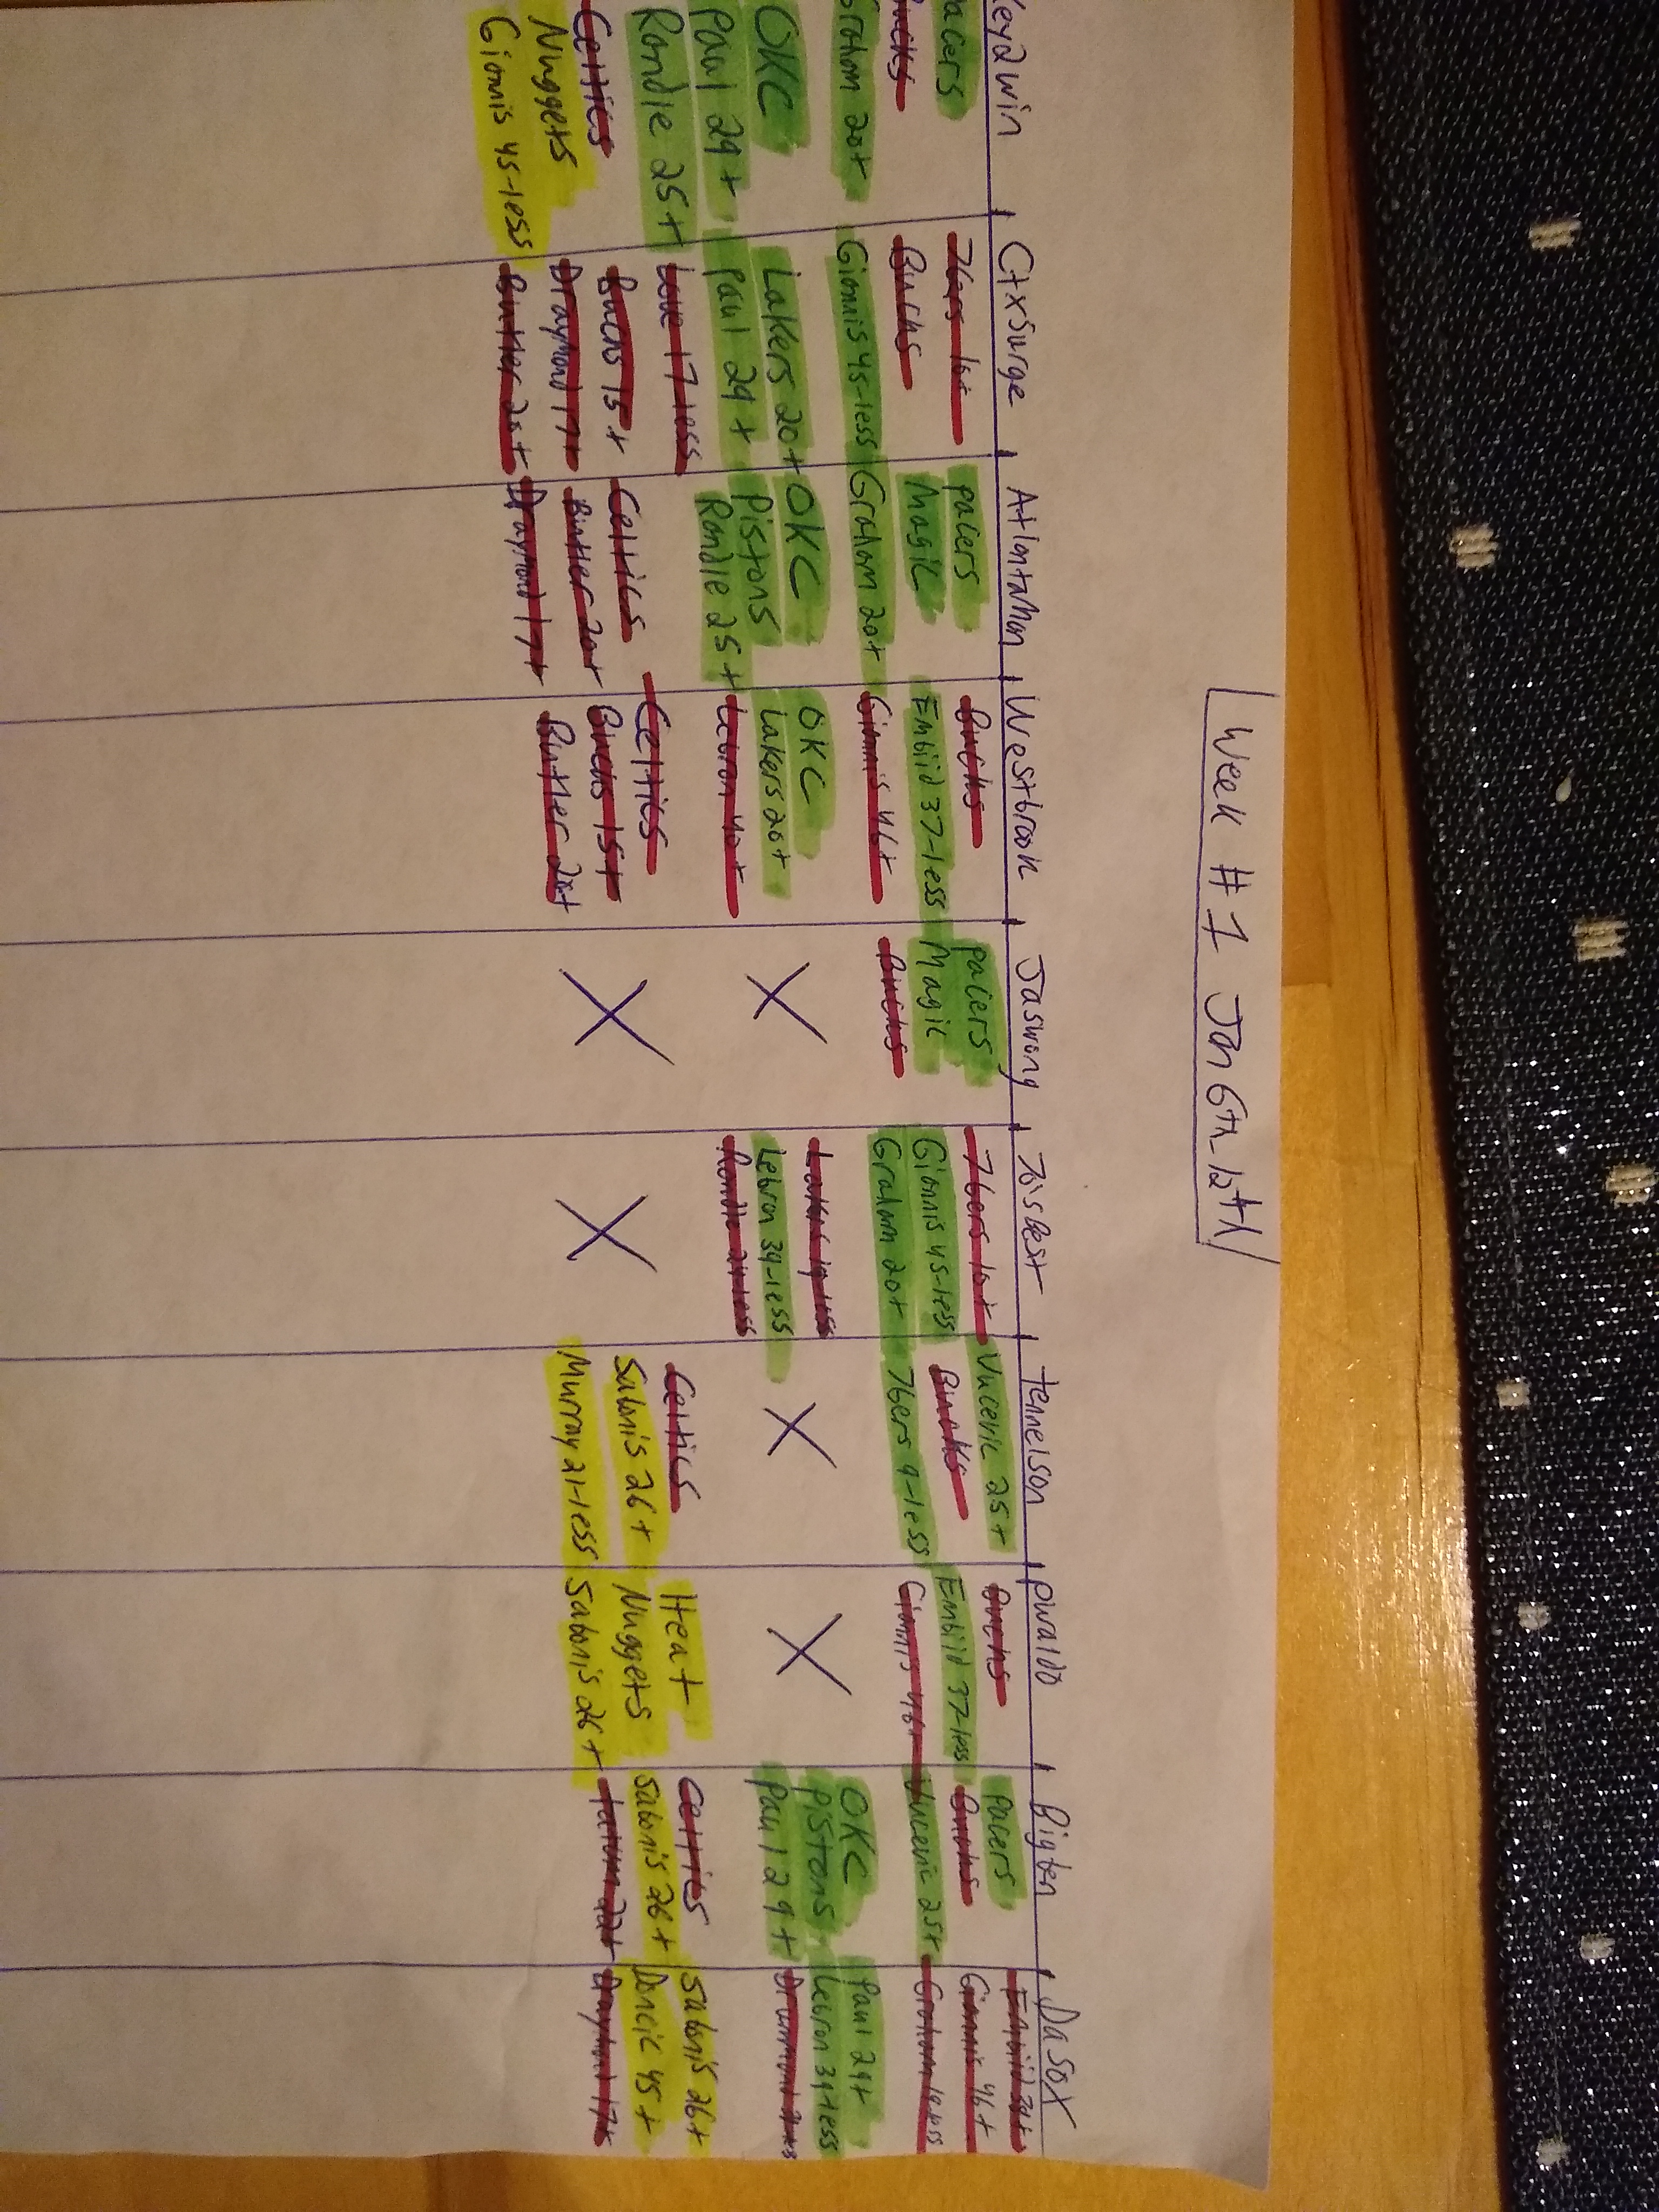 Week #1 Jan 6th-12th
Key2win
pacers
Bucks
Graham 20+
OKC
Paul 29+
Randle 25+
Celtics
Nuggets
Gionnis 45-less
Ctxsurge
76ers 10+
Bucks
Gionnis 45-less
Lakers 20+
Paul 29+
Love 17-less
Bucks 15+
Draymond 17+
Butler 20+
Atlantaman
pacers
Magic
Graham 20+
OKC
Pistons
Randle 25+
Celtics
Butler 20+
Draymond 17+
Westbrook
Bucks
Embiid 37-less
Gionnis 46+
OKC
Lakers 20+
Lebron 40+
Celtics
Bucks 15+
Butler 20+
Jaswong
pacers
Magic
Bucks
X
X
76sbest
76ers 10+
Gionnis 45-less
Graham 20+
Lakers 19-less
Lebron 39-less
Randle 24-less
X
tennelson
Vucevic 25+
Bucks
76ers 9-less
X
Celtics
Sabonis 26+
Murray 21-less
pwaldo
Bucks
Embiid 37-less
Gionnis 46+
X
Heat
Nuggets
Sabonis 26+
Bigten
pacers
Bucks
Vucevic 25+
OKC
pistons
Paul 29+
Celtics
Sabonis 26+
tatum 22+
Dasox
Embiid 38+
Gionnis 46+
Graham 19-less
Paul 29+
Lebron 39-less
Drummond
Sabonis 26+
Doncic 45+
Draymond 17+